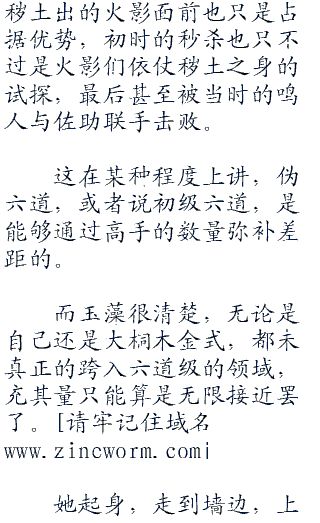 秽土出的火影面前也只是占
据优势，初时的秒杀也只不
过是火影们依仗秽土之身的
试探，最后甚至被当时的鸣
人与佐助联手击败。
这在某种程度上讲，伪
六道，或者说初级六道，是
能够通过高手的数量弥补差
距的。
而玉藻很清楚，无论是
自己还是大桐木金式，都未
真正的跨入六道级的领域，
充其量只能算是无限接近罢
了。[请牢记住域名
www.zincworm.com|
她起身，走到墙边，上